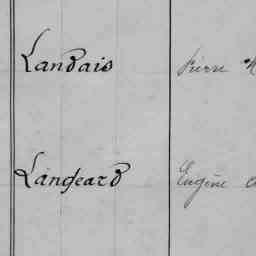 Landais Pierre M
Langeard Eugène